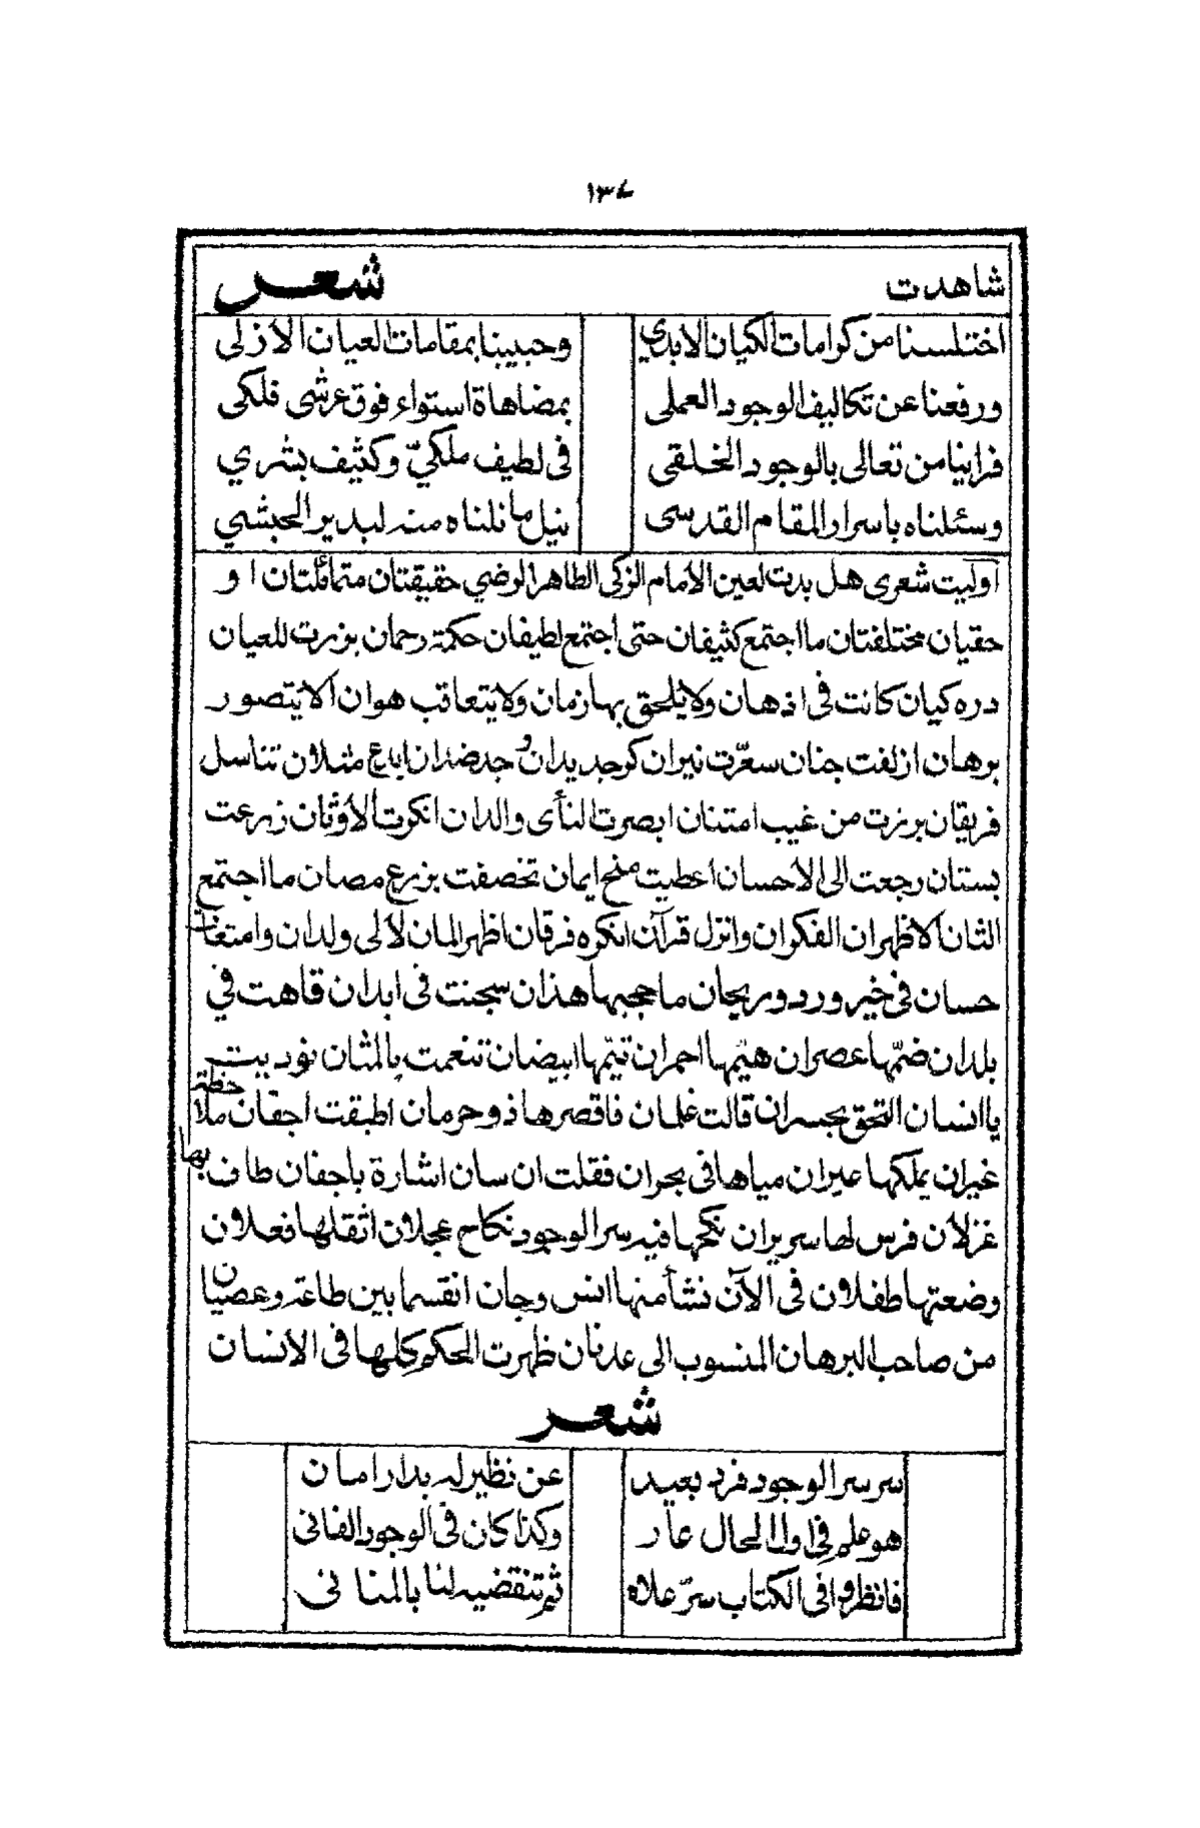 ١٣٧
شاهدت شعر
اختلسنا من كرامات الكيان الابدي وحبيبنا بمقامات العيان الأزلى
ورفعنا عن تكاليف الوجود العملى بمضاهاة استواء فوق عرشى فلكى
فرابنا من تعالى بالوجود الخلقى فى لطيف ملكيّ وكثيف بشري
وسئلناه باسرار المقام القدسى بنيل ما نلناه منه لبدير الحبشي
اوليت شعرى هل بدت لعين الأمام الزكى الطاهر الوضي حقيقتان متماثلتان او
حقيان مختلفتان ما اجتمع كثيفان حتى اجتمع لطيفان حكمة رحمان بزرت للعيان
دره كيان كانت فى اذهان ولا يلحق بها زمان ولا يتعاقب هوان الا يتصور
برهان ازلفت جنان سعّرت نيران كر جديدان و جد ضدان اباع مثلان تناسل
فريقان برزت من غيب امتنان ابصرت النأى والدان انكرت الأوثان زرعت
بستان رجعت الى الأحسان اعطيت منح ايمان تخصفت بزرع مصان ما اجتمع
الثان الا ظهران الفكران وانزل قرآن انكره فرقان اظهر المان لألى ولدان وامتغان
حسان فى خير ورد وريحان ما حجبها هذان سجنت فى ابدان قاهت في
بلدان ضمّها عصران هيّمها احمران تيّمها ابيضان تنعمت بالمثان نوديت
يا انسان التحق بجسران قالت غلمان فاقصرها ذو حرمان اطبقت اجفان ملأ حظته
غيران يملكها عيران مياها فى بحران فقلت ان سان اشارة باجفان طاف بها
غزلان فرس لها سريران نكحها فيه سر الوجود نكاح عجلان اثقلها فعلان
وضعتها طفلان فى الآن نشأ منها انس وجان انقسما بين طاعة وعصيان
من صاحب البرهان المنسوب الى عدنان ظهرت الحكم كلها فى الأنسان
شعر
سر سر الوجود فرد بعيد عن نظير له بدار امان
هو علم فى اول الحال عار وكذا كان فى الوجود الفانى
فانظروا فى الكتاب سرّ علاه ثم تنقضيه لنا بالمنانى